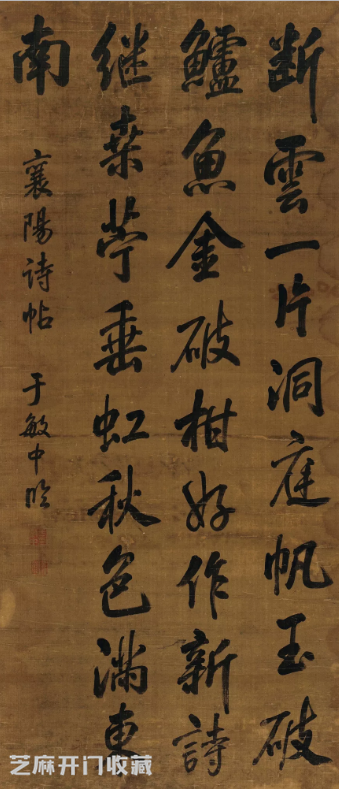 断雲一片洞庭帆玉破
鱸魚金破柑好作新詩
继桒苧垂虹秋色满東
南
襄陽诗帖 于敏中临
芝麻开门收藏